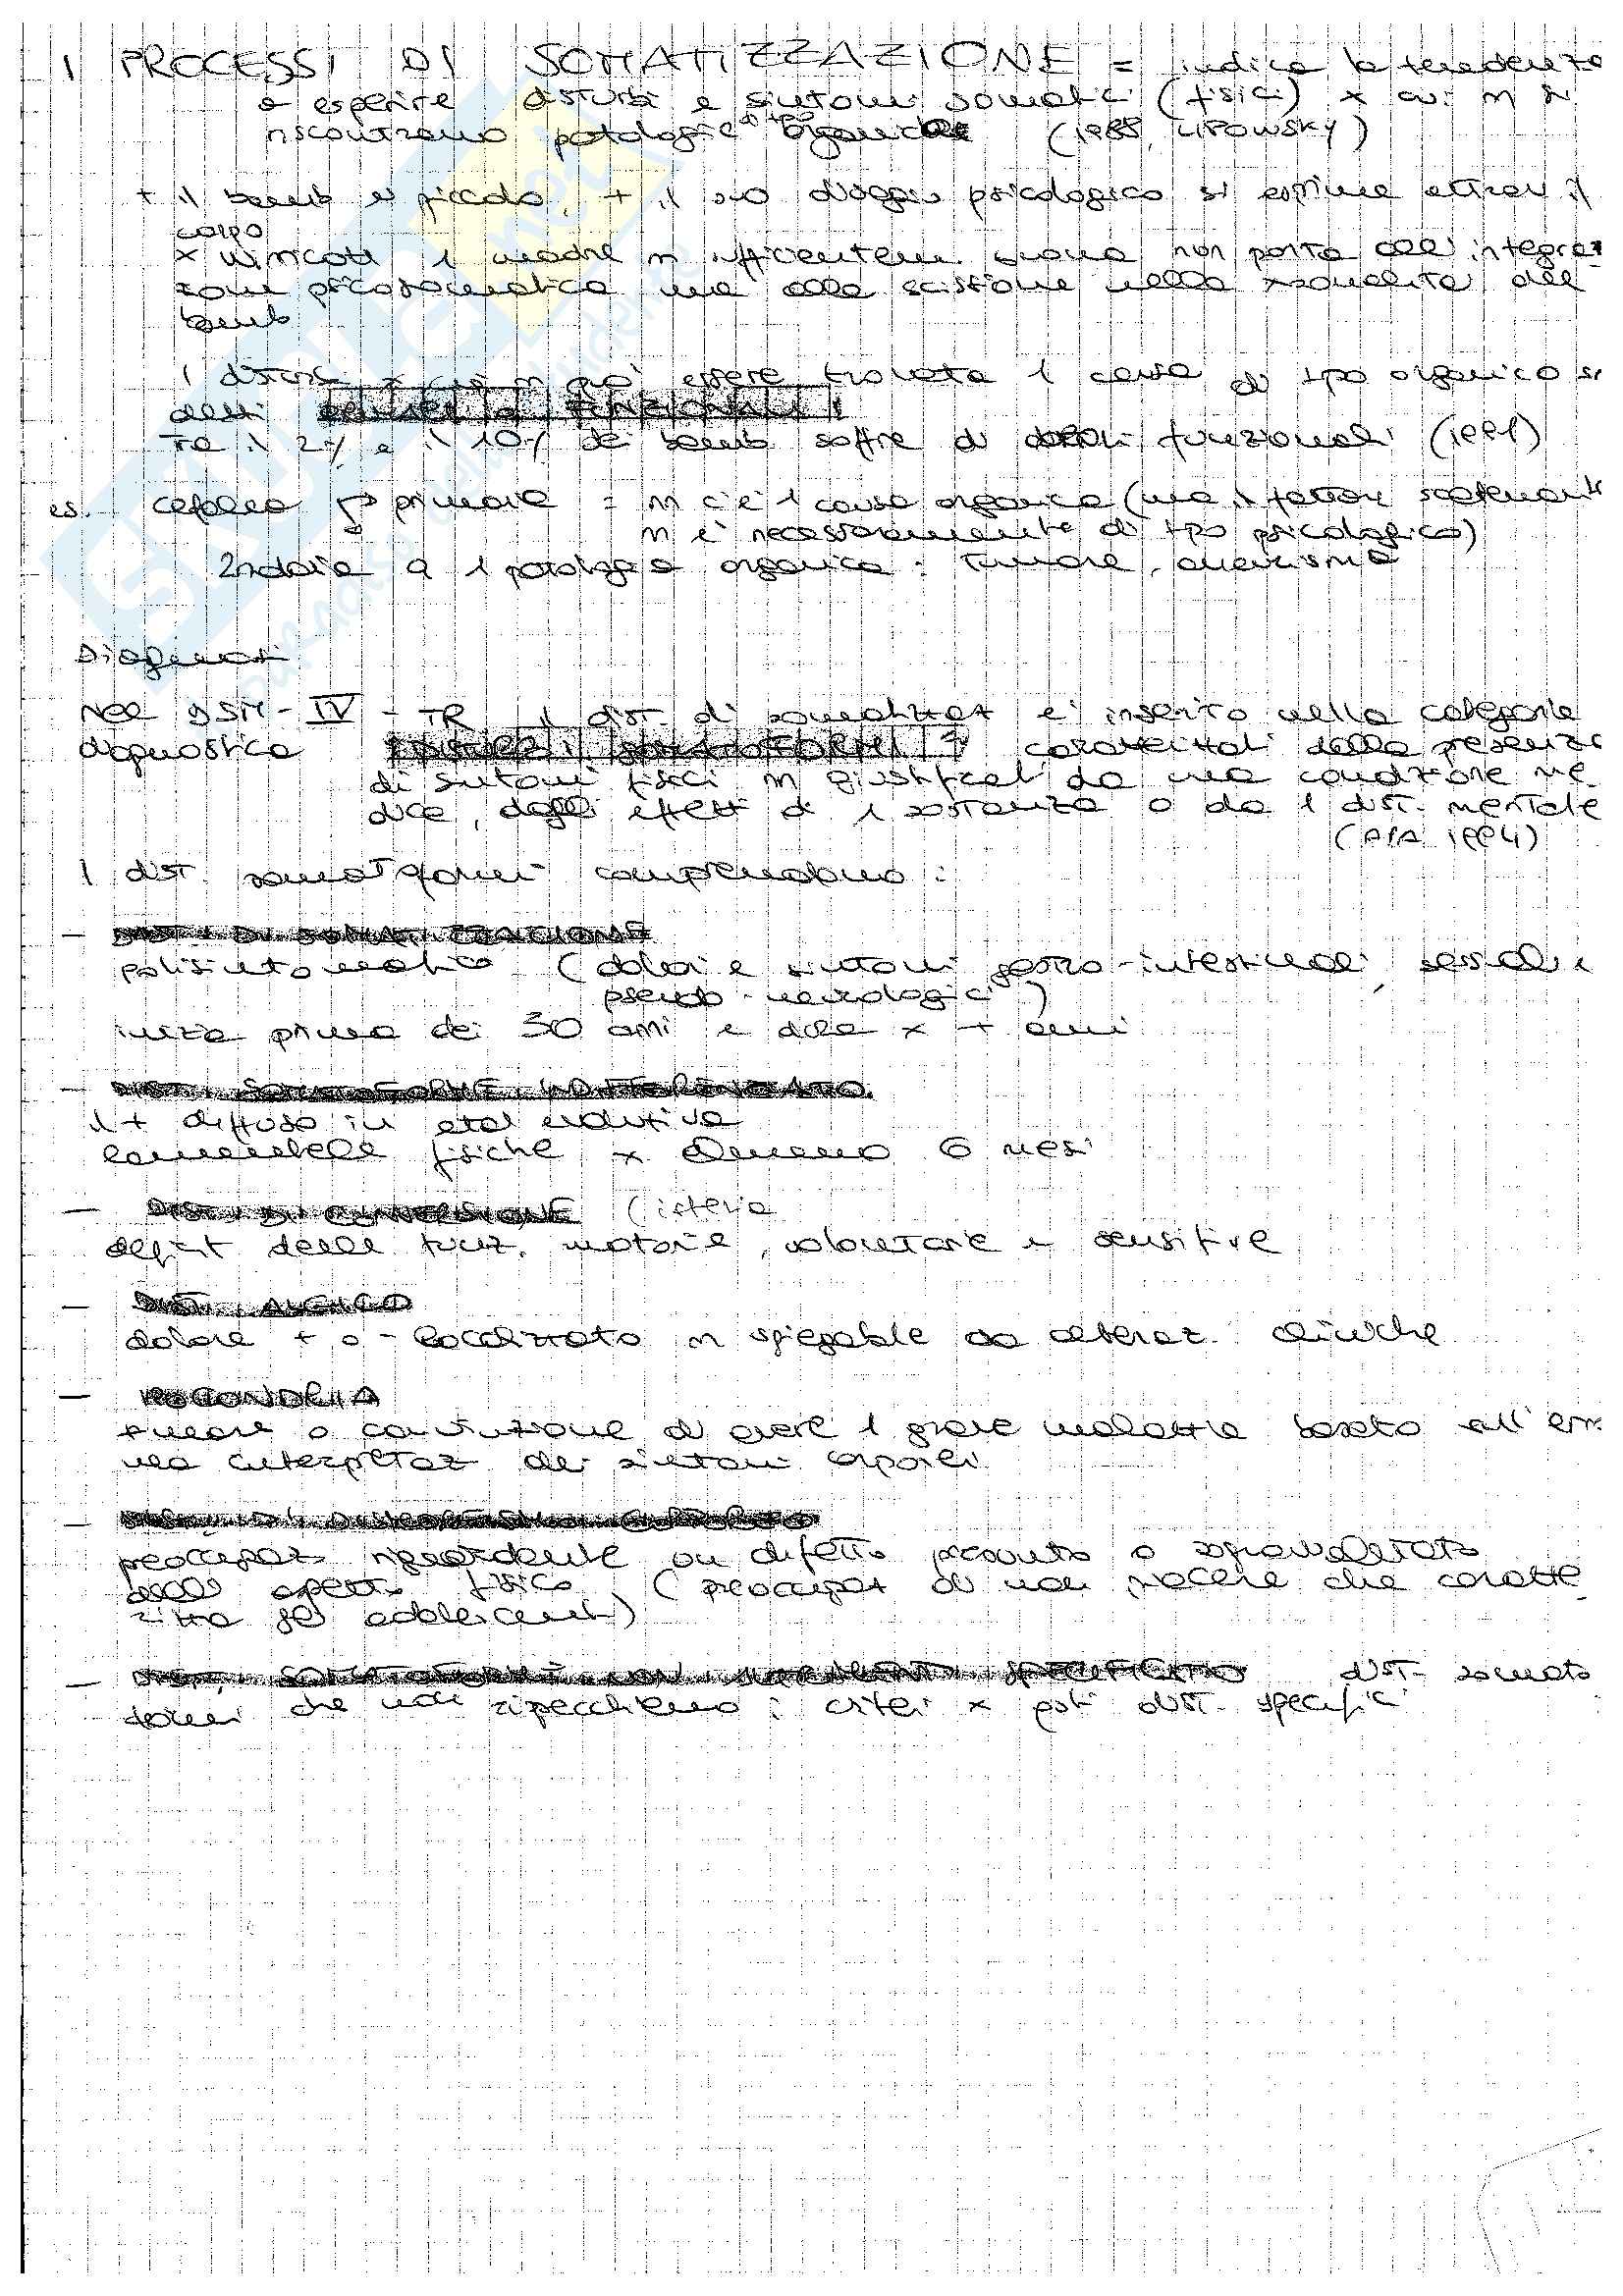 I PROCESSI DI SOMATIZZAZIONE = indica la tendenza
a esperire disturbi e sintomi somatici (fisici) x cui n si
riscontrano patologie di tipo organiche (1988, LIPOWSKY)
+ il bamb è piccolo, + il suo disagio psicologico si esprime attrav il
corpo
x Winicott 1 madre n sufficientem buona non porta all'integra
zione psicosomatica ma alla scissione nella xsonalità del
bamb
I disturbi x cui n può essere trovata 1 causa di tipo organico si
detti FUNZIONALI
Tra il 2% e il 10% dei bamb soffre di dolori funzionali (1991)
es. cefalea primaria = n c'è 1 causa organica (ma il fattore scatenante
n è necessariamente di tipo psicologico)
2ndaria a 1 patologia organica: tumore, aneurisma
Diagnosi
Nel DSM-IV-TR il dist. di somatizzaz è inserito nella categoria
diagnostica DISTURBI SOMATOFORMI caratterizzati dalla presenza
di sintomi fisici n giustificati da una condizione me
dica, dagli effetti di 1 sostanza o da 1 dist. mentale
(APA 1994)
I dist. somatoformi comprendono:
- DIST. DI SOMATIZZAZIONE
polisintomatico (dolori e sintomi gastro-intestinali, sessuali e
pseudo-neurologici)
inizia prima dei 30 anni e dura x + anni
- DIST. SOMATOFORME INDIFFERENZIATO
il + diffuso in età evolutiva
lamentele fisiche x almeno 6 mesi
- DIST. DI CONVERSIONE (isteria
deficit delle funz. motorie, volontarie e sensitive
- DIST. ALGICO
dolore + o - localizzato n spiegabile da alteraz. cliniche
- IPOCONDRIA
timore o convinzione di avere 1 grave malattia basato sull'erro
nea interpretaz dei sintomi corporei
- DIST. DI DISMORFISMO CORPOREO
preoccupaz riguardante un difetto presunto o sopravvalutato
dell'aspetto fisico (preoccupaz di non piacere che caratte
rizza gli adolescenti)
- DIST. SOMATOFORME NON ALTRIMENTI SPECIFICATO dist. somato
formi che non rispecchiano i criteri x gli dist. specifici